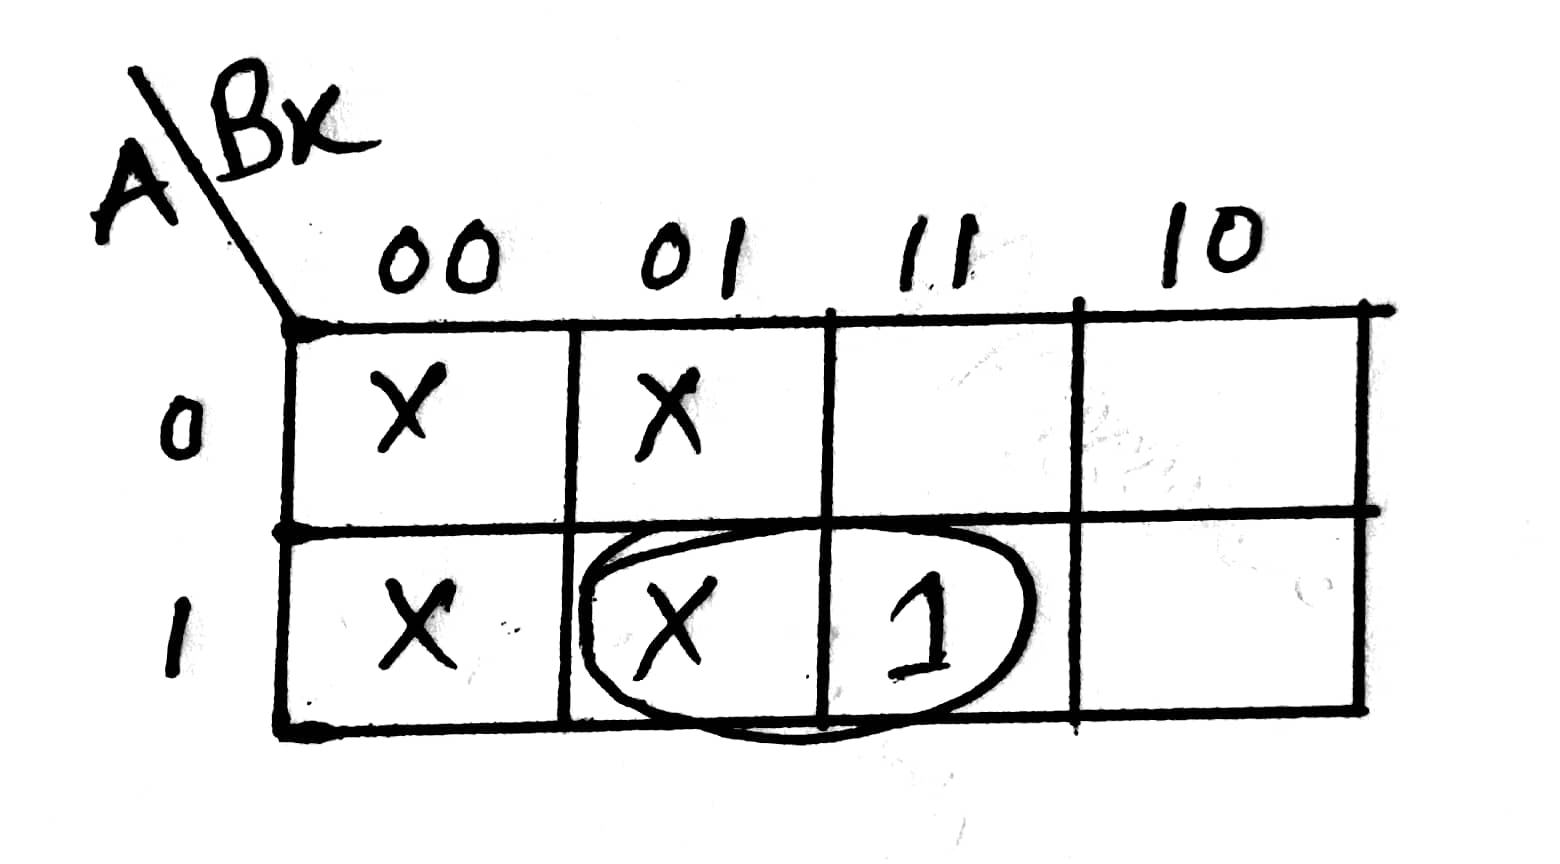 A\Bx
00 01 11 10
0 X X
1 X X 1